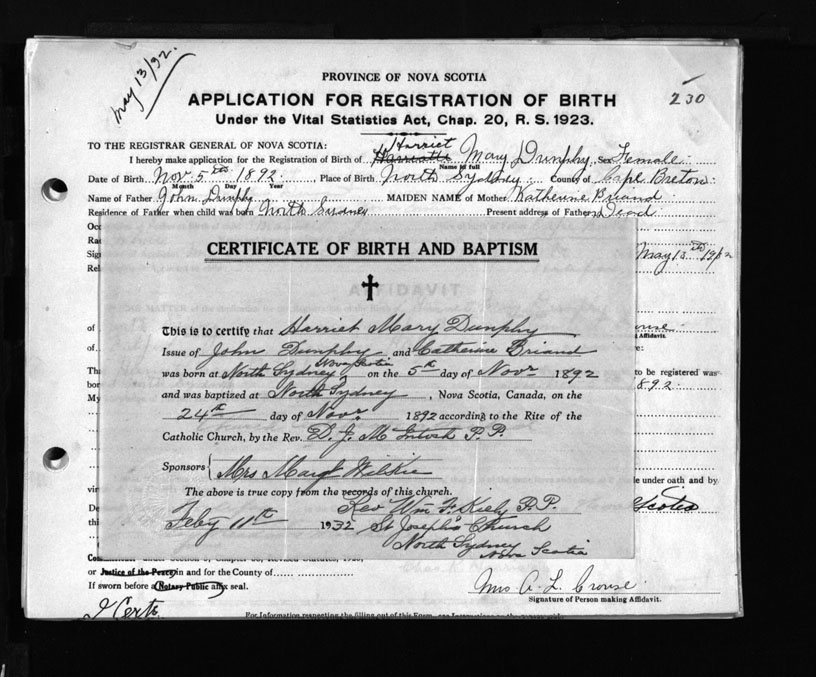 May 13/32.
PROVINCE OF NOVA SCOTIA
230
APPLICATION FOR REGISTRATION OF BIRTH
Under the Vital Statistics Act, Chap. 20, R. S. 1923.
TO THE REGISTRAR GENERAL OF NOVA SCOTIA:
Harriet
I hereby make application for the Registration of Birth of Harriatte May Dunphy Sex Female
Name in full
Date of Birth Nov 5th 1892. Place of Birth North Sydney County of Cape Breton
Month Day Year
Name of Father John Dunphy MAIDEN NAME of Mother Katherine Briand
Residence of Father when child was born North Sydney Present address of Father Dead
Occ
Ra
Sig May 13th 1932
Rel
CERTIFICATE OF BIRTH AND BAPTISM
This is to certify that Harriet Mary Dunphy
of
Affidavit.
Issue of John Dunphy and Catherine Briand
of
Nova Scotia
was born at North Sydney on the 5th day of Novr 1892
Tha to be registered was
bor 1892.
and was baptized at North Sydney, Nova Scotia, Canada, on the
My
24th day of Novr. 1892 according to the Rite of the
Catholic Church, by the Rev. D. J. McIntosh P. P.
Sponsors Mrs Margt Wilkie
le under oath and by
The above is true copy from the records of this church.
vir
Rev Wm F. Kiely P.P. Scotia
De
Feby 11th 1932 St Joseph's Church
thi
North Sydney
Nova Scotia
or Justice of the Peace in and for the County of
If sworn before a (Notary Public affix seal.
Mrs A. L. Crouse
Signature of Person making Affidavit.
I Certe
For Information respecting the filling out of this Form, see